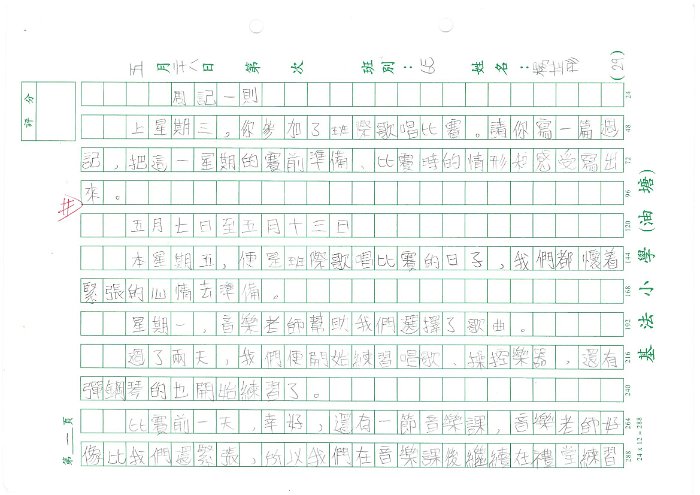 五月廿八日 第 次 班別：6B 姓名： (29)
評分
周記一則 24
上星期三，你參加了班際歌唱比賽。請你寫一篇週 48
記，把這一星期的賽前準備、比賽時的情形和感受寫出 72
來。 96
五月七日至五月十三日 120
本星期五，便是班際歌唱比賽的日子，我們都懷着 144
緊張的心情去準備。 168
星期一，音樂老師幫助我們選擇了歌曲。 192
過了兩天，我們便開始練習唱歌、操控樂器，還有 216
彈鋼琴的也開始練習了。 240
比賽前一天，幸好，還有一節音樂課，音樂老師好 264
像比我們還緊張，所以我們在音樂課後繼續在禮堂練習 288
第一頁
24 x 12 = 288
基法小學(油塘)